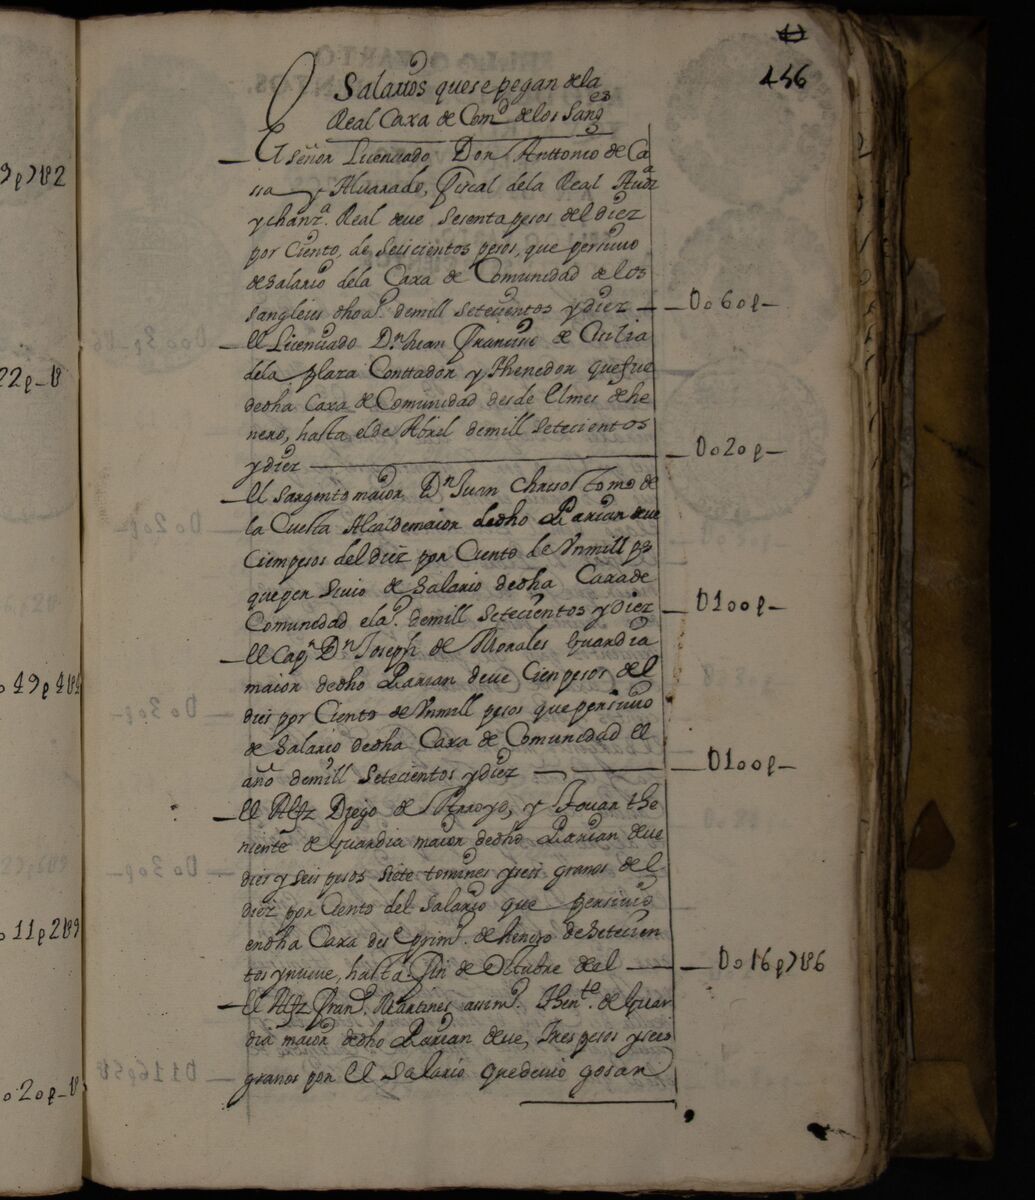 456
Salarios que se pagan dela
Real Caxa de Comd de los Sangs
El señor Licenciado Don Anttonio de Ca
sa y Alvarado, fiscal dela Real Audª
y chanzª. Real deue sesenta pesos del diez
por Ciento, de Seiscientos pesos, que persiuio
de salario dela Caxa de Comunidad de los
sangleies dho aº. demill setecientos y diez — U060p—
El Licenciado Dn Juan Francisco de
dela Plaza Conttador y thenedor que fue
dedha Caxa de Comunidad desde el mes de he
nero, hasta el de Abril demill setecientos
y diez — U020p—
El sargento maior Dn Juan Chrisostomo de
la Cuesta Alcalde maior dedho Parian deue
Cien pesos del diez por Ciento de Vn mill ps
que persiuio de salario dedha Caxa de
Comunidad el aº. demill setecientos y diez — U100p—
El Capn Dn Joseph de Morales Guardia
maior dedho Parian deue Cien pesos del
dies por Ciento de Vn mill pesos que persiuio
de salario dedha Caxa de Comunidad el
año demill setecientos y diez — U100p—
El Alfz Diego de Arroyo, y Touar the
niente de guardia maior dedho Parian deue
dies y seis pesos siete tomines y seis granos del
diez por Ciento del salario que persiuio
en dha Caxa desde primº. de henero de setecien
tos y nueue, hasta fin de Octubre del — U016p7U6
El Alfz Franº. Martines assimº. thente. de Guar
dia maior dedho Parian deue, tres pesos y seis
granos por el salario que deuio gosar
9p7U2
22p—U
049p4U4
011p2U9
020p—U